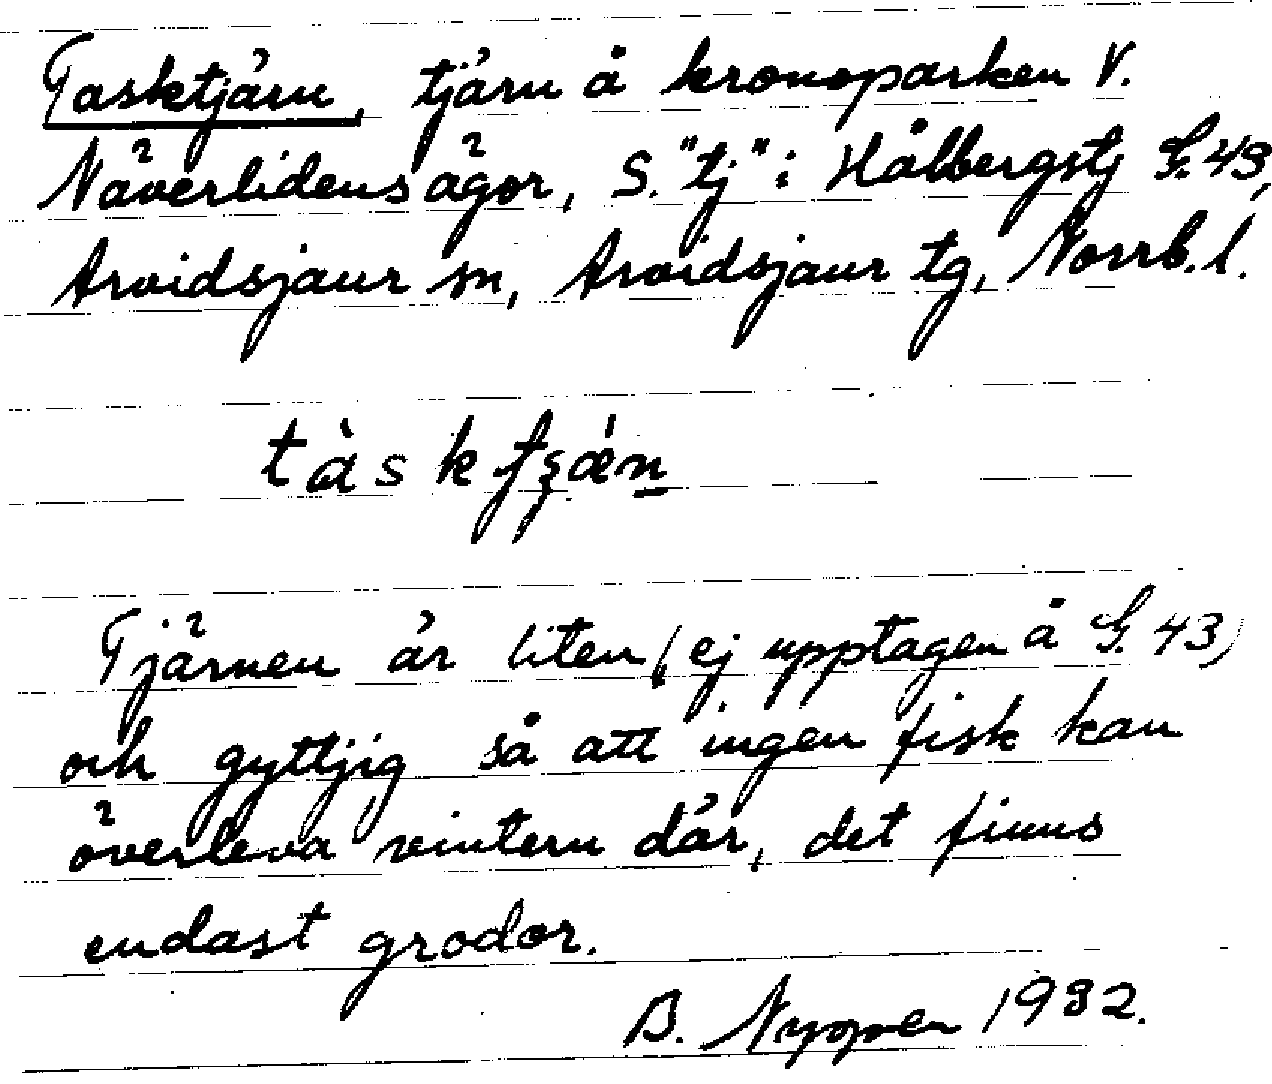 Tasktjärn, tjärn å kronoparken V.
Näverlidens ägor, S. "tj" i Hålbergstj G. 43,
Arvidsjaur sn, Arvidsjaur tg, Norrb. l.
tàsktʂǽn
Tjärnen är liten (ej upptagen å G. 43)
och gyttjig så att ingen fisk kan
överleva vintern där, det finns
endast grodor.
B. 1932.